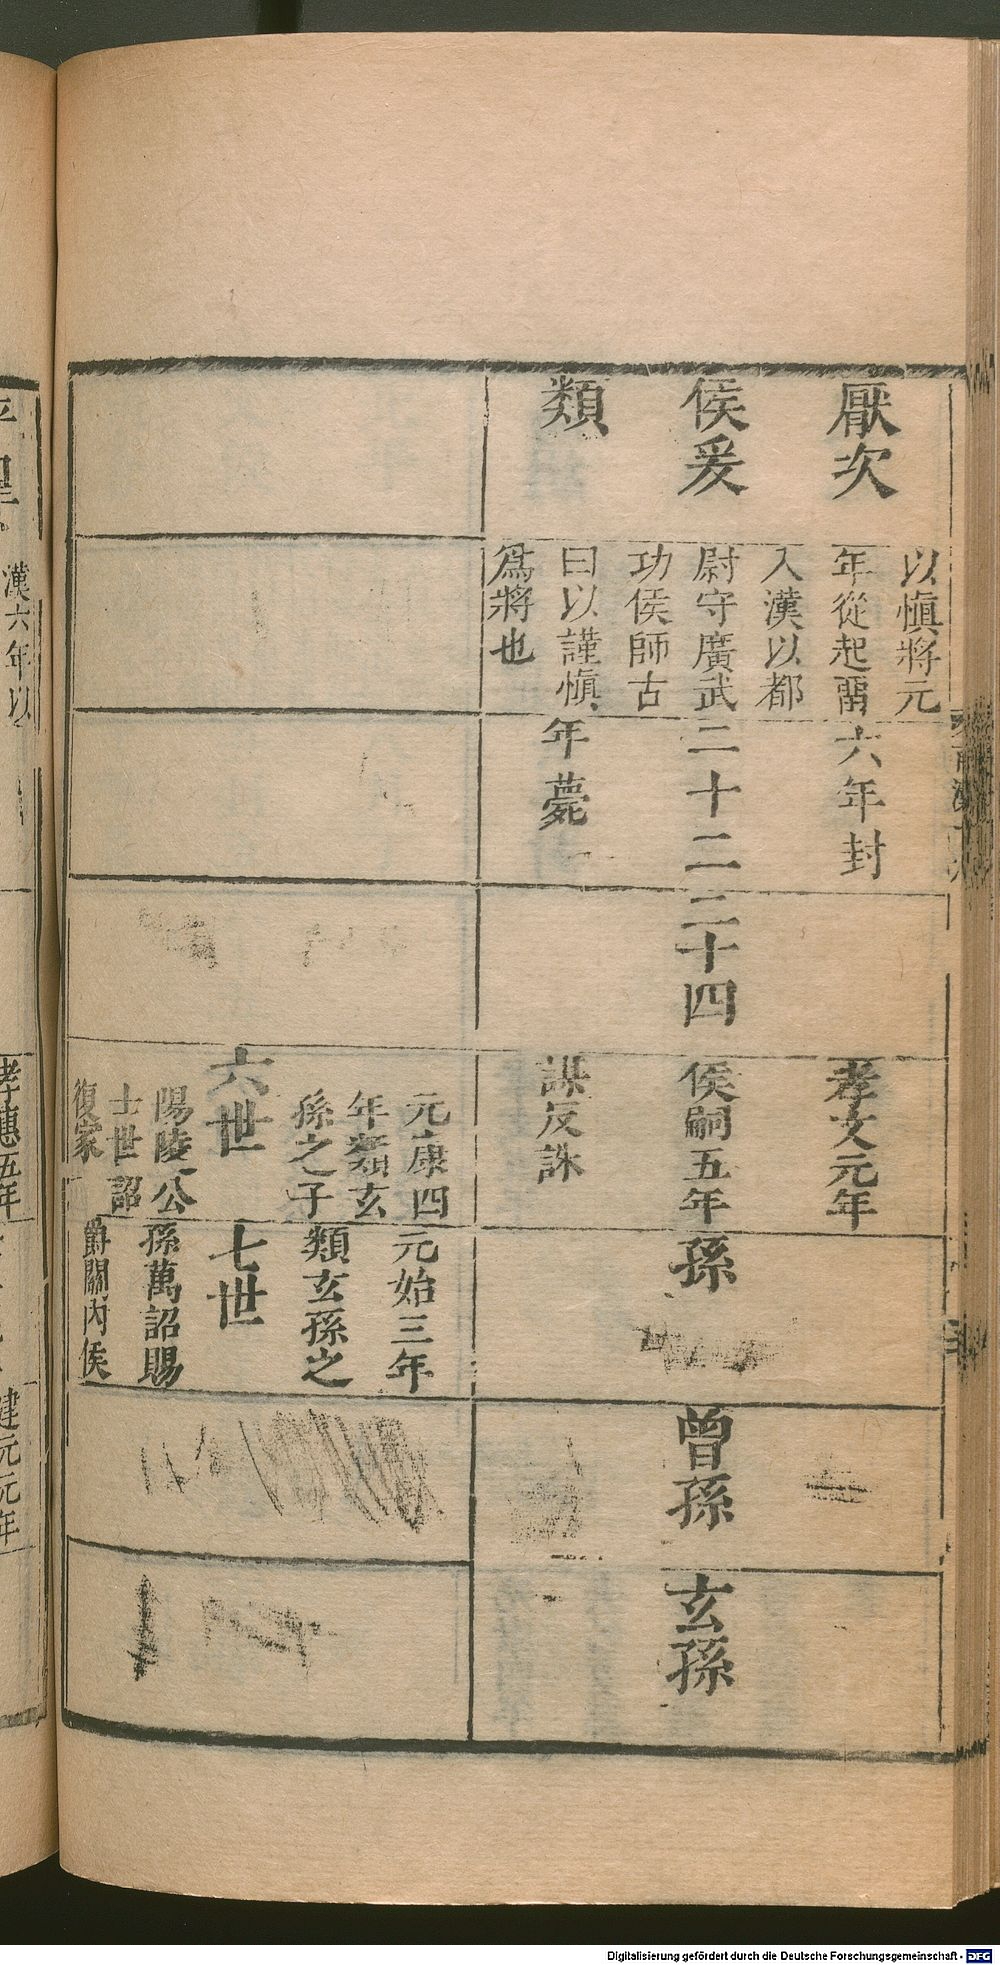 厭次
侯爰
類
以愼將元
年從起留
入漢以都
尉守廣武
功侯師古
曰以謹愼
爲將也
六年封
二十二
年薨
二十四
孝文元年
侯嗣五年
謀反誅
孫
曾孫
玄孫
元康四
年類玄
孫之子
六世
陽陵公
士世詔
復家
元始三年
類玄孫之
七世
孫萬詔賜
爵關內侯
漢六年以
孝惠五年
建元元年
Digitalisierung gefördert durch die Deutsche Forschungsgemeinschaft - DFG